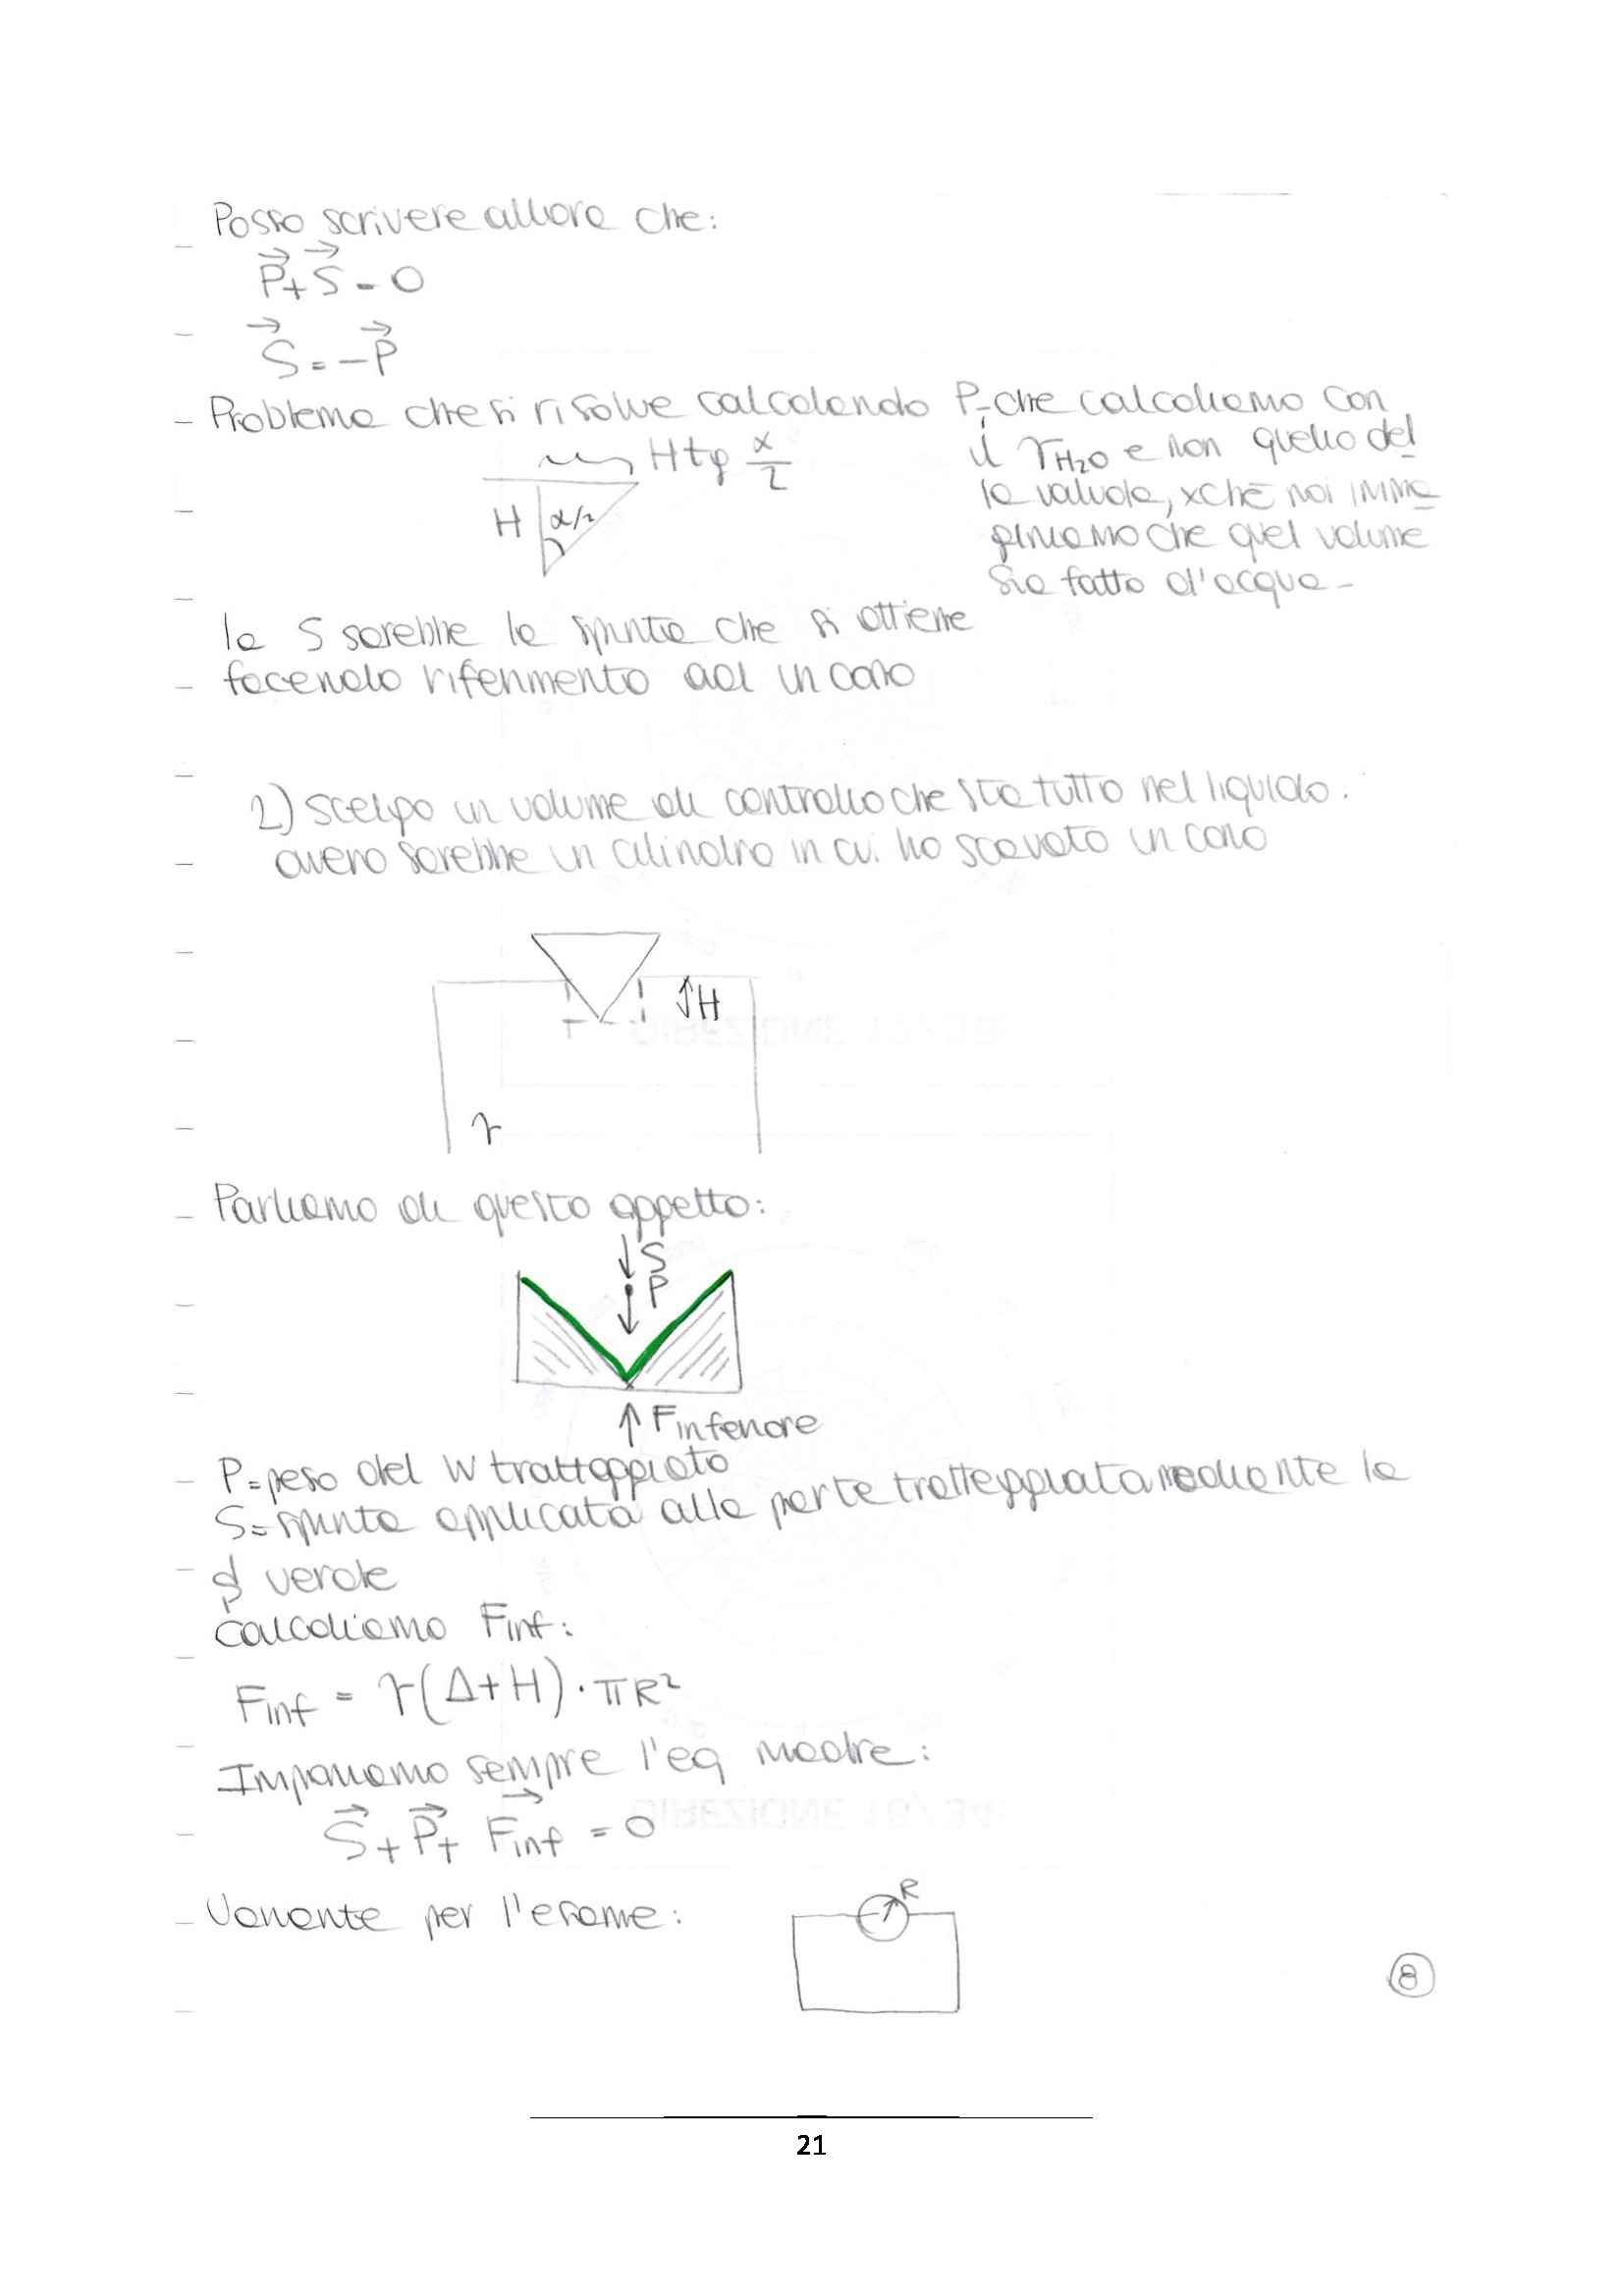 Posso scrivere allora che:
P + S = 0
S = -P
Problema che si risolve calcolando P, che calcoliamo con
il γH₂O e non quello del
la valvola, xchè noi imma
giniamo che quel volume
sia fatto d'acqua -
H tg α/2
H α/2
la S sarebbe la spinta che si ottiene
facendo riferimento ad un cono
2) Scelgo un volume di controllo che sta tutto nel liquido:
ovvero sarebbe un cilindro in cui ho scavato un cono
H
γ
Parliamo di questo oggetto:
S
P
F inferiore
P = peso del W tratteggiato
S = spinta applicata alla parte tratteggiata mediante la
verde
Calcoliamo Finf:
Finf = γ(Δ+H)·πR²
Imponiamo sempre l'eq madre:
S + P + Finf = 0
Variante per l'esame:
R
8
21